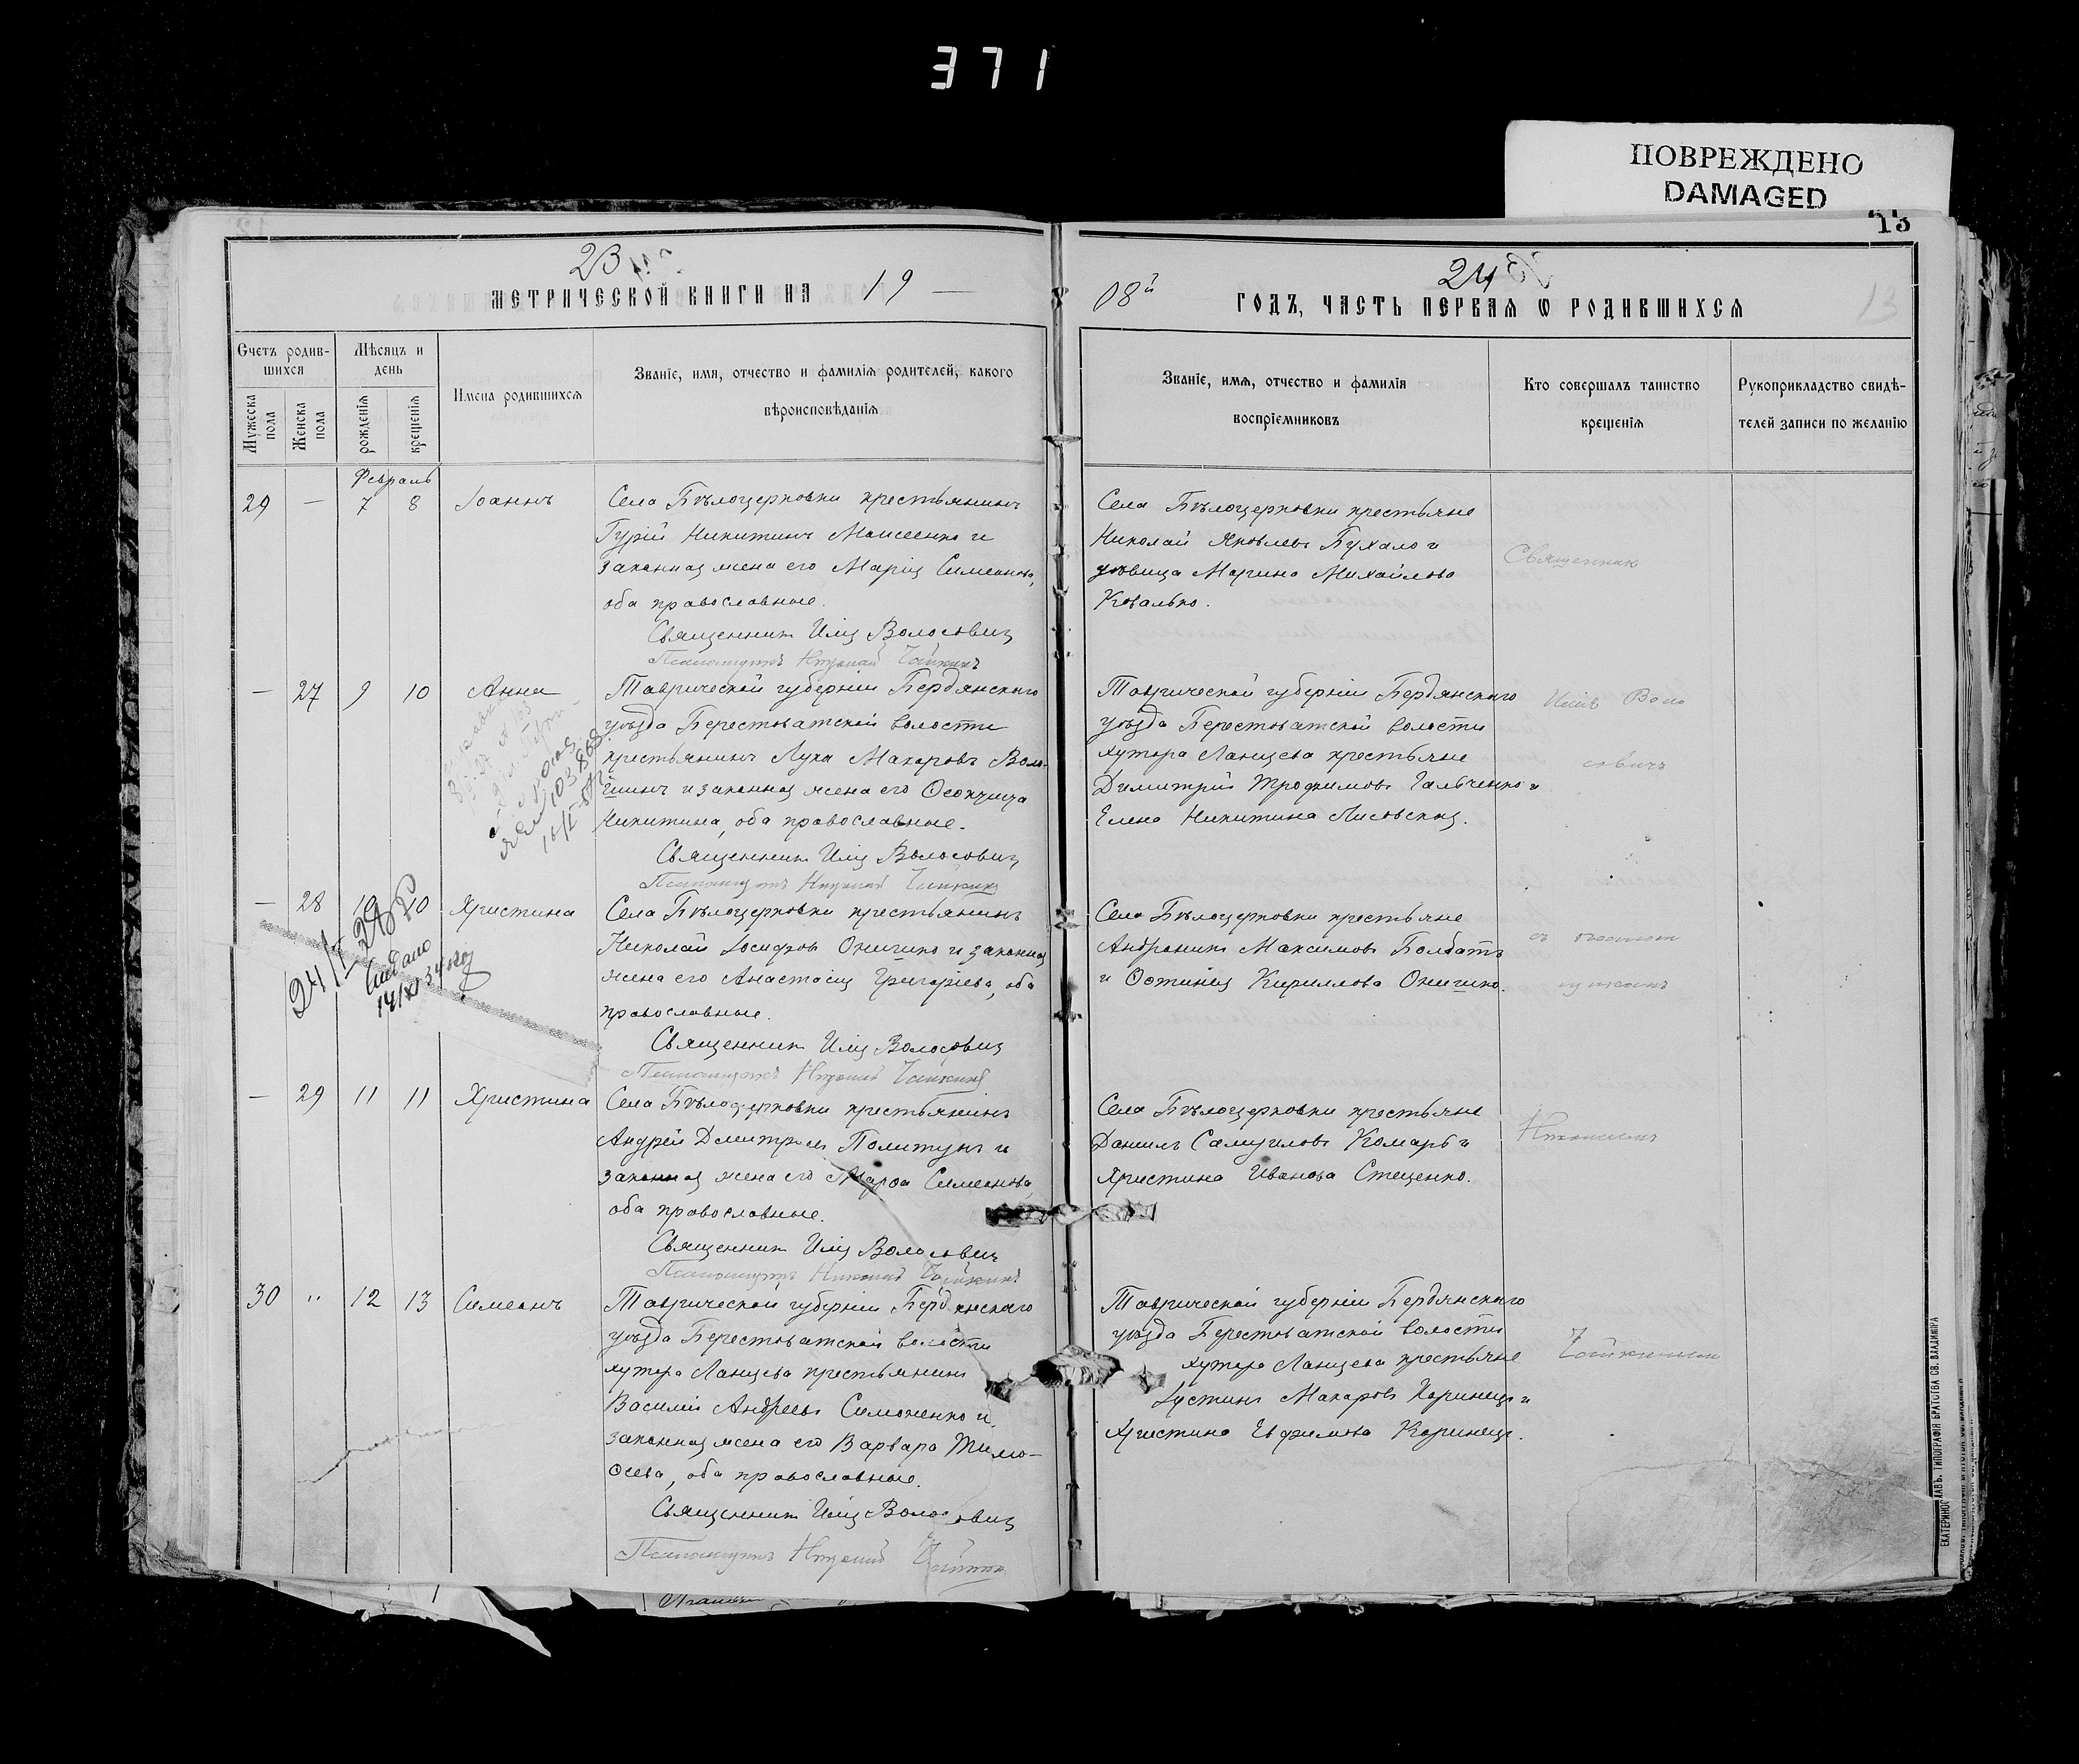 371
ПОВРЕЖДЕНО
DAMAGED
13
23
МЕТРИЧЕСКОЙ КНИГИ НА 19
Счетъ родив-
шихся
Мѣсяцъ и
день
Имена родившихся
Званіе, имя, отчество и фамилія родителей, какого
вѣроисповѣданія
Мужеска
пола
Женска
пола
рожденія
крещенія
Февраль
29 — 7 8 Іоаннъ Села Бѣлоцерковки крестьянинъ
Гурій Никитинъ Моисеенко и
законная жена его Марія Симеонова,
оба православные.
Священникъ Илія Волосовичъ
Псаломщикъ Николай Чайкинъ
— 27 9 10 Анна Таврической губерніи Бердянскаго
уѣзда Берестоватской волости
крестьянинъ Лука Макаровъ Воло-
шинъ и законная жена его Ѳеоктиста
Никитина, оба православные.
Священникъ Илія Волосовичъ
Псаломщикъ Николай Чайкинъ
— 28 10 10 Христина Села Бѣлоцерковки крестьянинъ
Николай Іосифовъ Онишко и законная
жена его Анастасія Григоріева, оба
православные.
Священникъ Илія Волосовичъ
Псаломщикъ Николай Чайкинъ
— 29 11 11 Христина Села Бѣлоцерковки крестьянинъ
Андрей Димитріевъ Политунъ и
законная жена его Марѳа Симеонова,
оба православные.
Священникъ Илія Волосовичъ
Псаломщикъ Николай Чайкинъ
30 " 12 13 Симеонъ Таврической губерніи Бердянскаго
уѣзда Берестоватской волости
хутора Ланцева крестьянинъ
Василій Андреевъ Симоненко и
законная жена его Варвара Тимо-
ѳеева, оба православные.
Священникъ Илія Волосовичъ
Псаломщикъ Николай
24
08й ГОДЪ, ЧАСТЬ ПЕРВАЯ Ѡ РОДИВШИХСЯ
13
Званіе, имя, отчество и фамилія
воспріемниковъ
Кто совершалъ таинство
крещенія
Рукоприкладство свидѣ-
телей записи по желанію
Села Бѣлоцерковки крестьяне
Николай Яковлевъ Бухало и
вдовица Марина Михайлова
Ковалько.
Таврической губерніи Бердянскаго
уѣзда Берестоватской волости
хутора Ланцева крестьяне
Димитрій Трофимовъ Гальченко и
Елена Никитина Лисовская.
Села Бѣлоцерковки крестьяне
Андроникъ Максимовъ Болбатъ
и Ѳотинія Кириллова Онишко.
Села Бѣлоцерковки крестьяне
Даніилъ Самуиловъ Комаръ и
Христина Иванова Стеценко.
Таврической губерніи Бердянскаго
уѣзда Берестоватской волости
хутора Ланцева крестьяне
Іустинъ Макаровъ Каринецъ и
Христина Евфимова Каринецъ.
Священник
Илія Воло
совичъ
съ псалом
щикомъ
Николаем
Чайкиным
ЕКАТЕРИНОСЛАВЪ. ТИПОГРАФІЯ БРАТСТВА СВ. ВЛАДИМІРА